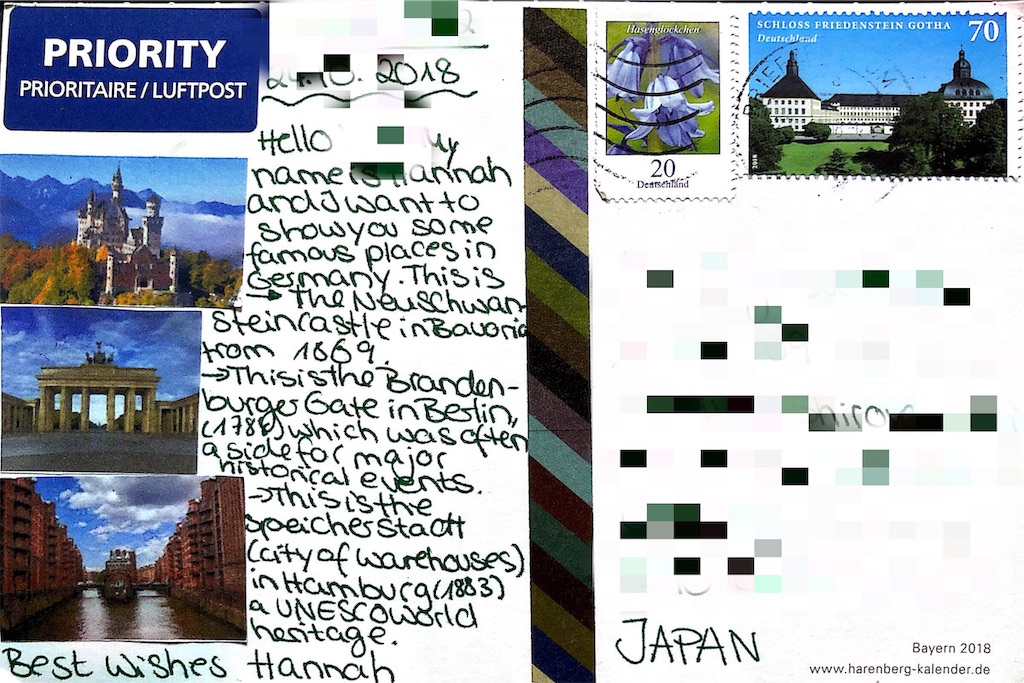 PRIORITY
PRIORITAIRE / LUFTPOST
24.10.2018
Hello
My
name is Hannah
and I want to
show you some
famous places in
Germany. This is
→ The Neuschwan-
stein castle in Bavaria
from 1869.
→ This is the Branden-
burger Gate in Berlin,
(1788) which was often
a side for major
historical events.
→ This is the
Speicherstadt
(city of warehouses)
in Hamburg (1883)
a UNESCO world
heritage.
Best Wishes Hannah
Hasenglöckchen
20
Deutschland
SCHLOSS FRIEDENSTEIN GOTHA
Deutschland
70
2018
JAPAN
Bayern 2018
www.harenberg-kalender.de